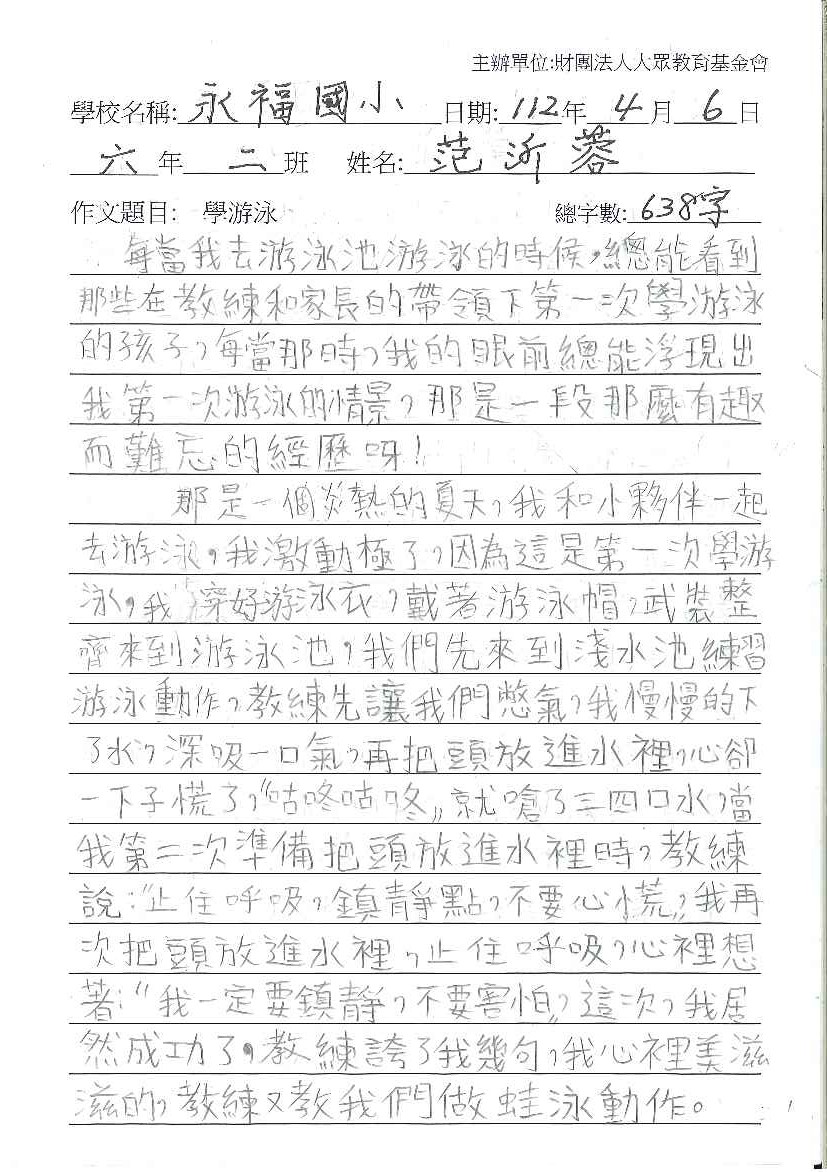 主辦單位:財團法人大眾教育基金會
學校名稱: 永福國小 日期: 112年 4月 6日
六年 二班 姓名: 范沂蓉
作文題目: 學游泳 總字數: 638字
每當我去游泳池游泳的時候,總能看到
那些在教練和家長的帶領下第一次學游泳
的孩子,每當那時,我的眼前總能浮現出
我第一次游泳的情景,那是一段那麼有趣
而難忘的經歷呀!
那是一個炎熱的夏天,我和小夥伴一起
去游泳,我激動極了,因為這是第一次學游
泳,我穿好游泳衣,戴著游泳帽,武裝整
齊來到游泳池,我們先來到淺水池練習
游泳動作,教練先讓我們憋氣,我慢慢的下
了水,深吸一口氣,再把頭放進水裡,心卻
一下子慌了,"咕咚咕咚"就嗆了三四口水,當
我第二次準備把頭放進水裡時,教練
說:"止住呼吸,鎮靜點,不要心慌"我再
次把頭放進水裡,止住呼吸,心裡想
著:"我一定要鎮靜,不要害怕"這次,我居
然成功了,教練誇了我幾句,我心裡美滋
滋的,教練又教我們做蛙泳動作。